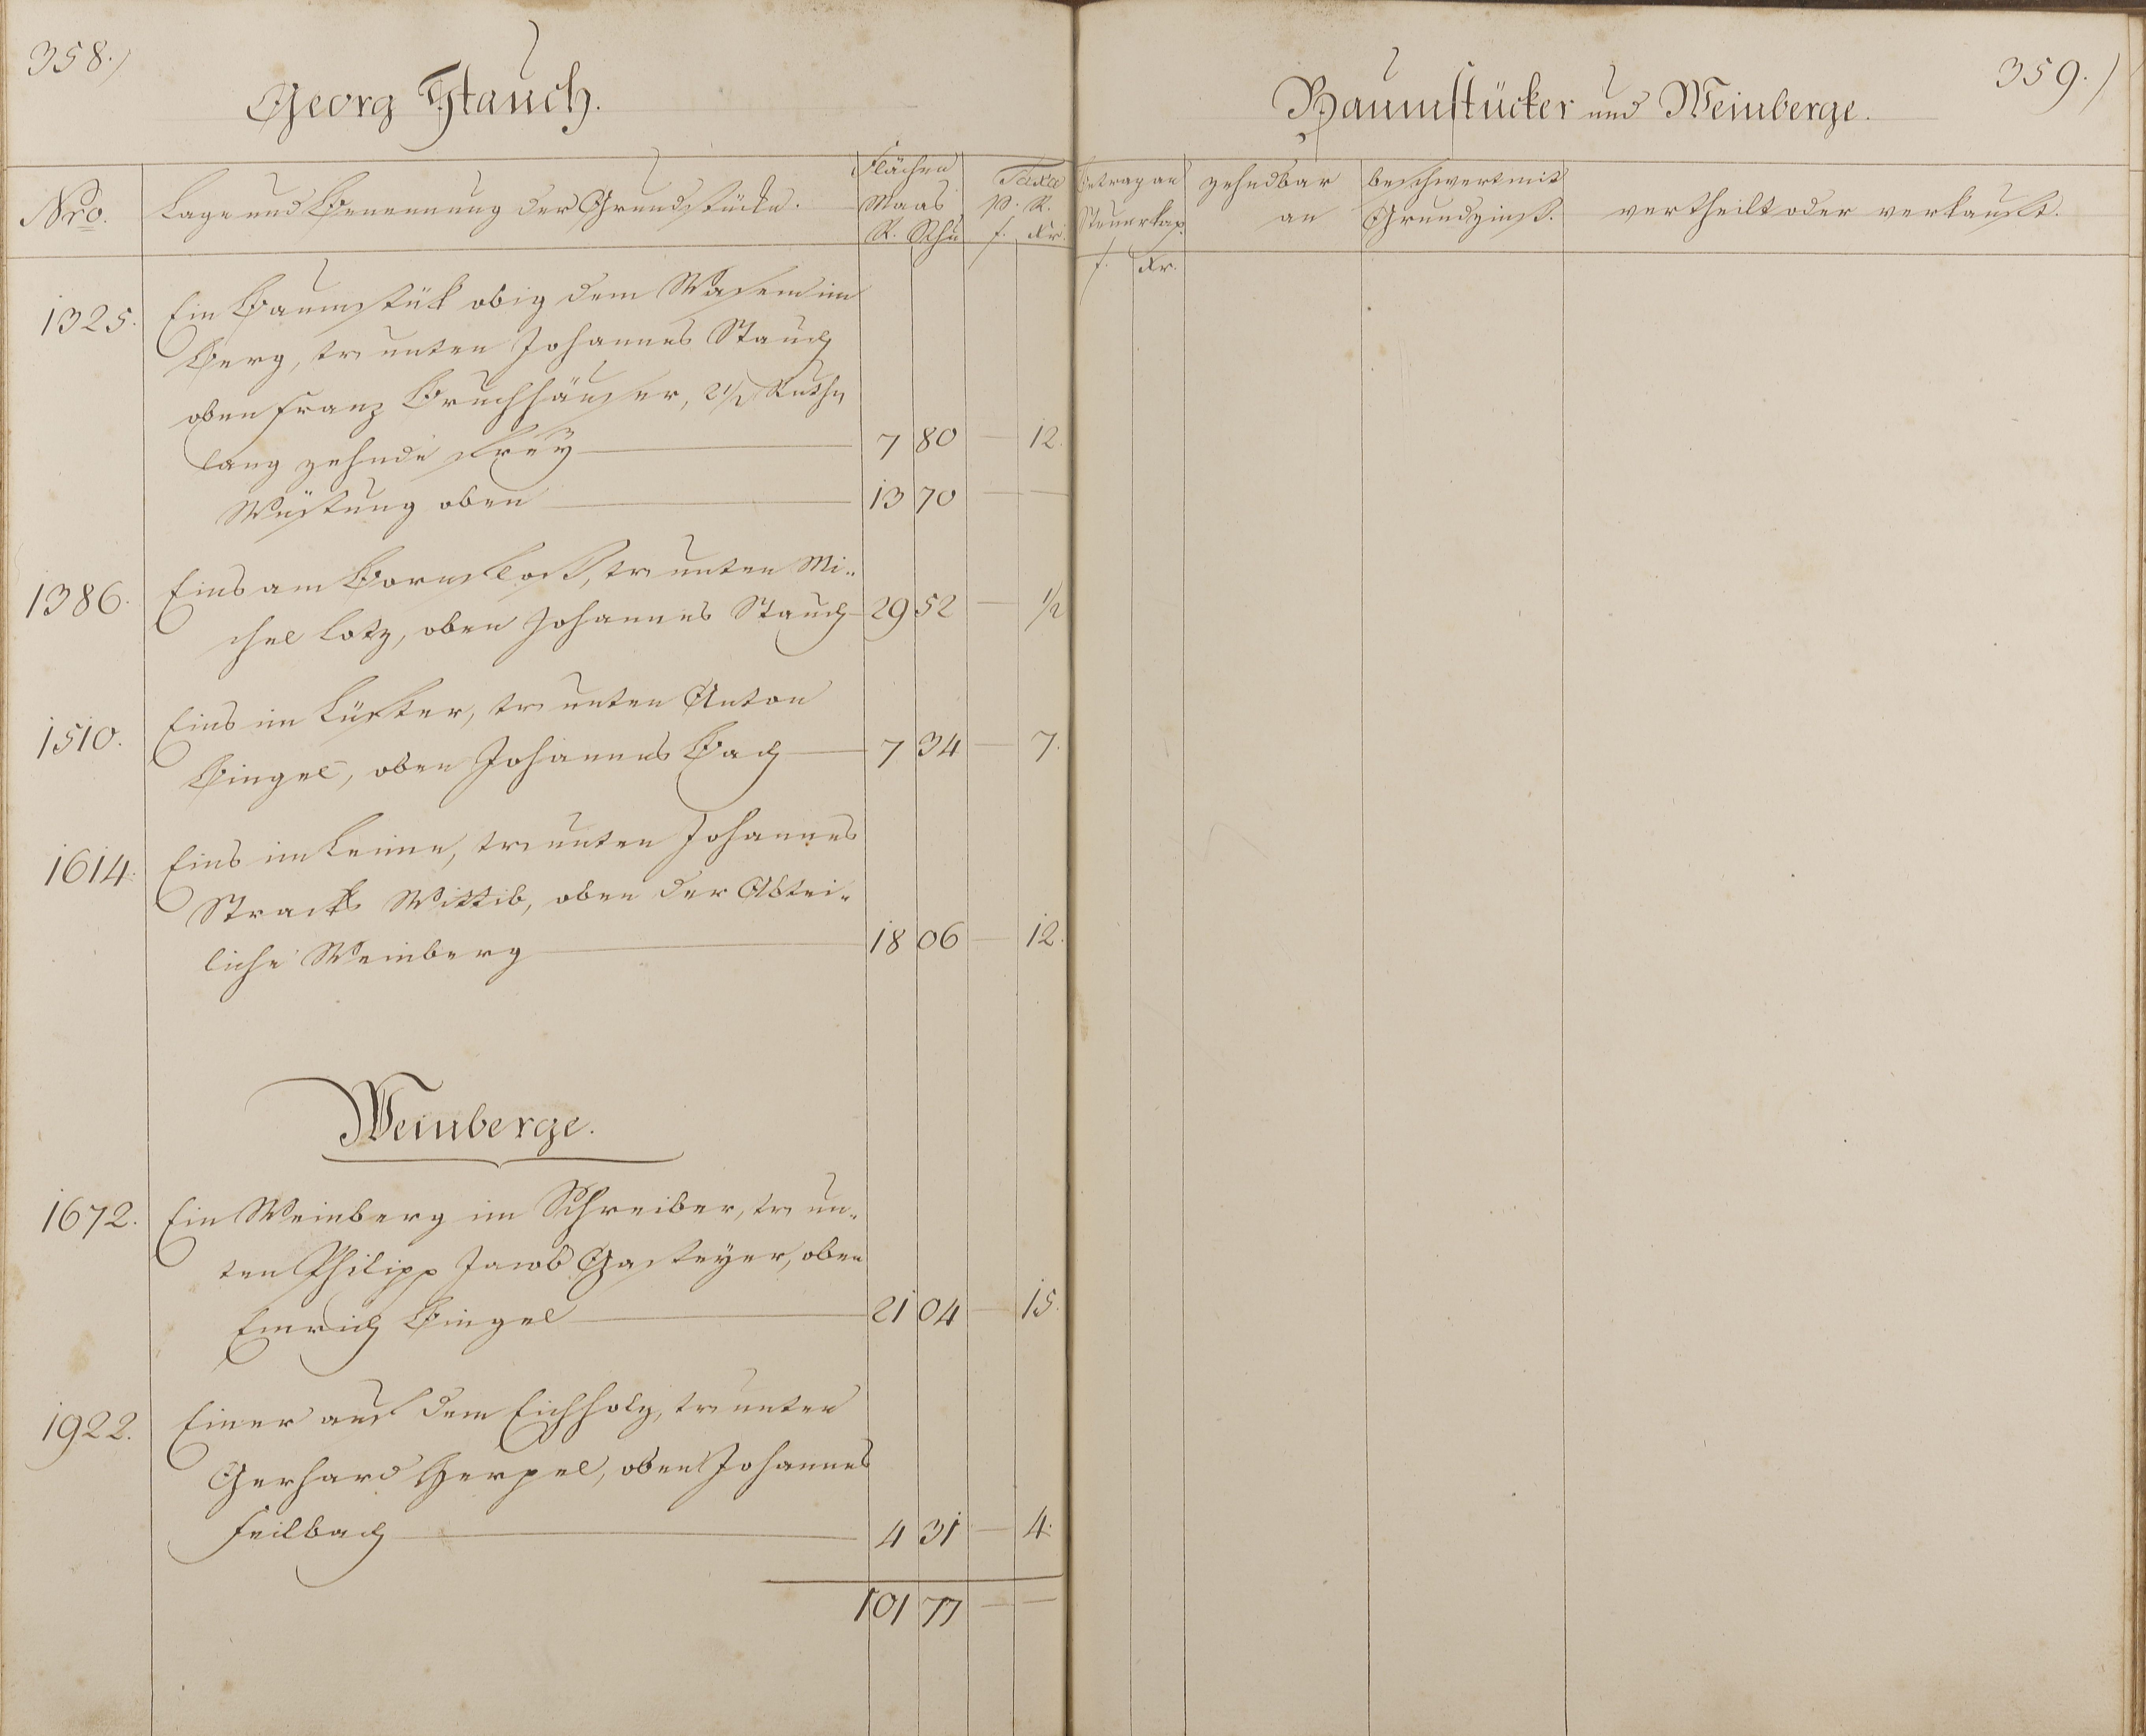 358.)
Georg Stauch.
Nro.
Lage und Benennung der Grundstücke.
Flächen
Maas
R. Schu
Taxa
p. R.
f. Kr.
1325.
Ein Baumstük obig dem Wasem im
Berg, tr unten Johannes Stauch
oben Franz Bruchhäuser, 2½ Ruthn
lang zehnde frey 7 80 — 12.
Wüstung oben 13 70 — —
1386.
Eins am Bornfloß, tr unten Mi-
chel Lotz, oben Johannes Stauch 29 52 — ½
1510.
Eins im Lüster, tr unten Anton
Bingel, oben Johannes Bach 7 34 — 7.
1614.
Eins im Leime, tr unten Johannes
Stracks Wittib, oben der Abtei-
liche Weinberg 18 06 — 12.
Weinberge.
1672.
Ein Weinberg im Schreiber, tr un-
ten Philipp Jacob Gasteyer, oben
Emrich Bingel 21 04 — 15.
1922.
Einer auf dem Eichholz, tr unten
Gerhard Herpel, oben Johannes
Feilbach 4 31 — 4.
101 77 — —
359.)
Baumstücker und Weinberge.
Betrag an
Steuerkap.
f. Kr.
zehndbar
an
beschwert mit
Grundzinß.
vertheilt oder verkauft.